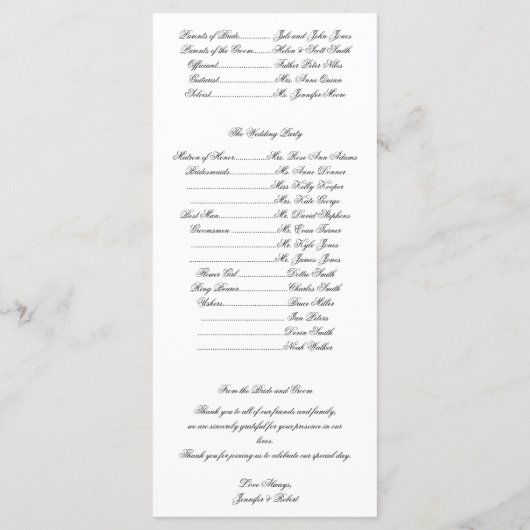 Parents of Bride............... Juli and John Jones
Parents of the Groom.......... Helen & Scott Smith
Officiant........................... Father Peter Niles
Guitarist............................Mrs. Anne Quinn
Soloist................................Ms. Jennifer Moore
The Wedding Party
Matron of Honor...............Mrs. Rose Ann Adams
Bridesmaids......................Ms. Anne Donner
........................................Miss Kelly Keeper
..........................................Mrs. Kate George
Best Man...........................Mr. David Stephens
Groomsmen ......................Mr. Evan Turner
.........................................Mr. Kyle Jones
.........................................Mr. James Jones
Flower Girl....................... Dottie Smith
Ring Bearer.......................Charles Smith
Ushers...............................Bruce Miller
........................................ Ian Peters
........................................ Devin Smith
.........................................Noah Walker
From the Bride and Groom
Thank you to all of our friends, and family,
we are sincerely grateful for your presence in our
lives.
Thank you for joining us to celebrate our special day.
Love Always,
Jennifer & Robert